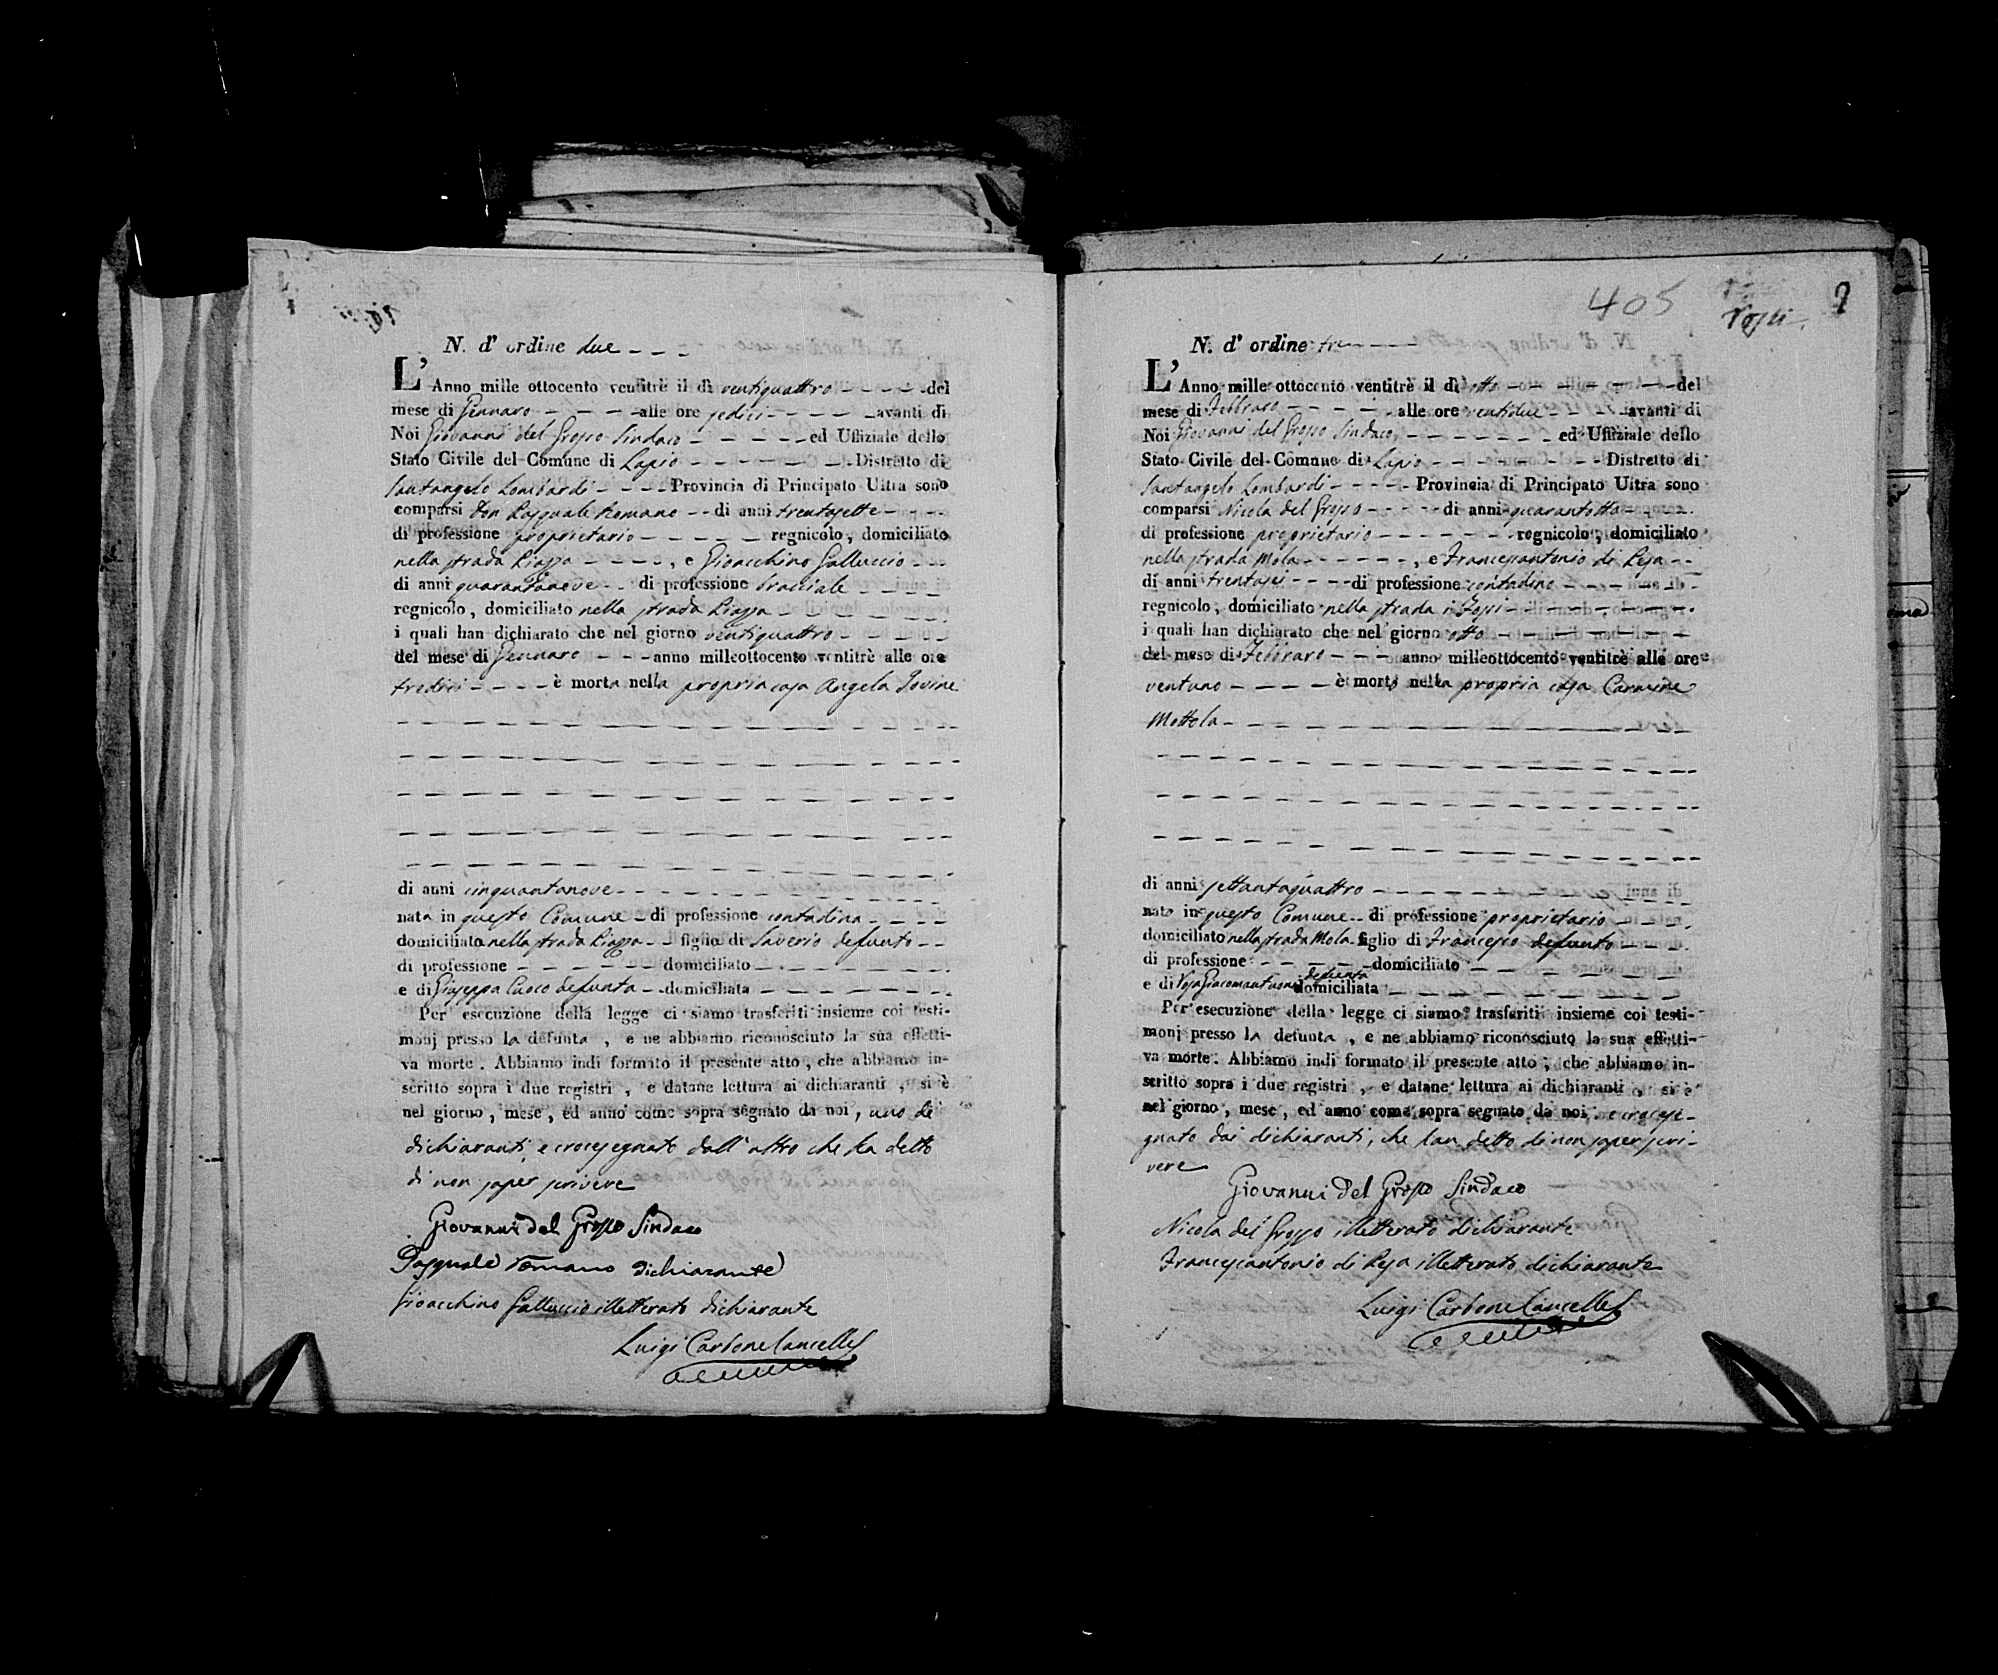 N. d' ordine due
L'Anno mille ottocento ventitrè il dì ventiquattro del
mese di Gennaro alle ore sedici avanti di
Noi Giovanni del Grosso Sindaco ed Uffiziale dello
Stato Civile del Comune di Lapio Distretto di
Santangelo Lombardi Provincia di Principato Ultra sono
comparsi Don Pasquale Romano di anni trentasette
di professione proprietario regnicolo, domiciliato
nella strada Piazza, e Gioacchino Galluccio
di anni quarantanove di professione bracciale
regnicolo, domiciliato nella strada Piazza
i quali han dichiarato che nel giorno ventiquattro
del mese di Gennaro anno milleottocento ventitrè alle ore
tredici è morta nella propria casa Angela Iovine
di anni cinquantanove
nata in questo Comune di professione contadina
domiciliata nella strada Piazza figlia di Saverio defunto
di professione domiciliato
e di Giuseppa Cuoco defunta domiciliata
Per esecuzione della legge ci siamo trasferiti insieme coi testi-
monj presso la defunta, e ne abbiamo riconosciuto la sua effetti-
va morte. Abbiamo indi formato il presente atto, che abbiamo in-
scritto sopra i due registri, e datane lettura ai dichiaranti, si è
nel giorno, mese, ed anno come sopra segnato da noi, uno de'
dichiaranti, e crocesegnato dall' altro che ha detto
di non saper scrivere
Giovanni del Grosso Sindaco
Pasquale Romano dichiarante
Gioacchino Galluccio illetterato dichiarante
Luigi Carbone Cancelle
405
2
N. d' ordine tre
L'Anno mille ottocento ventitrè il dì otto del
mese di Febbraro alle ore ventidue avanti di
Noi Giovanni del Grosso Sindaco ed Uffiziale dello
Stato Civile del Comune di Lapio Distretto di
Santangelo Lombardi Provincia di Principato Ultra sono
comparsi Nicola del Grosso di anni quarantotto
di professione proprietario regnicolo, domiciliato
nella strada Mola, e Francescantonio di Resa
di anni trentasei di professione contadino
regnicolo, domiciliato nella strada i Fossi
i quali han dichiarato che nel giorno otto
del mese di Febbraro anno milleottocento ventitrè alle ore
ventuno è morto nella propria casa Carmine
Mottola
di anni settantaquattro
nato in questo Comune di professione proprietario
domiciliato nella strada Mola figlio di Francesco defunto
di professione domiciliato
e di Rosa Giacomantuono defunta domiciliata
Per esecuzione della legge ci siamo trasferiti insieme coi testi-
monj presso la defunta, e ne abbiamo riconosciuto la sua effetti-
va morte. Abbiamo indi formato il presente atto, che abbiamo in-
scritto sopra i due registri, e datane lettura ai dichiaranti, si è
nel giorno, mese, ed anno come sopra segnato da noi, e crocese-
gnato dai dichiaranti, che han detto di non saper scri-
vere
Giovanni del Grosso Sindaco
Nicola del Grosso illetterato dichiarante
Francescantonio di Resa illetterato dichiarante
Luigi Carbone Cancelle